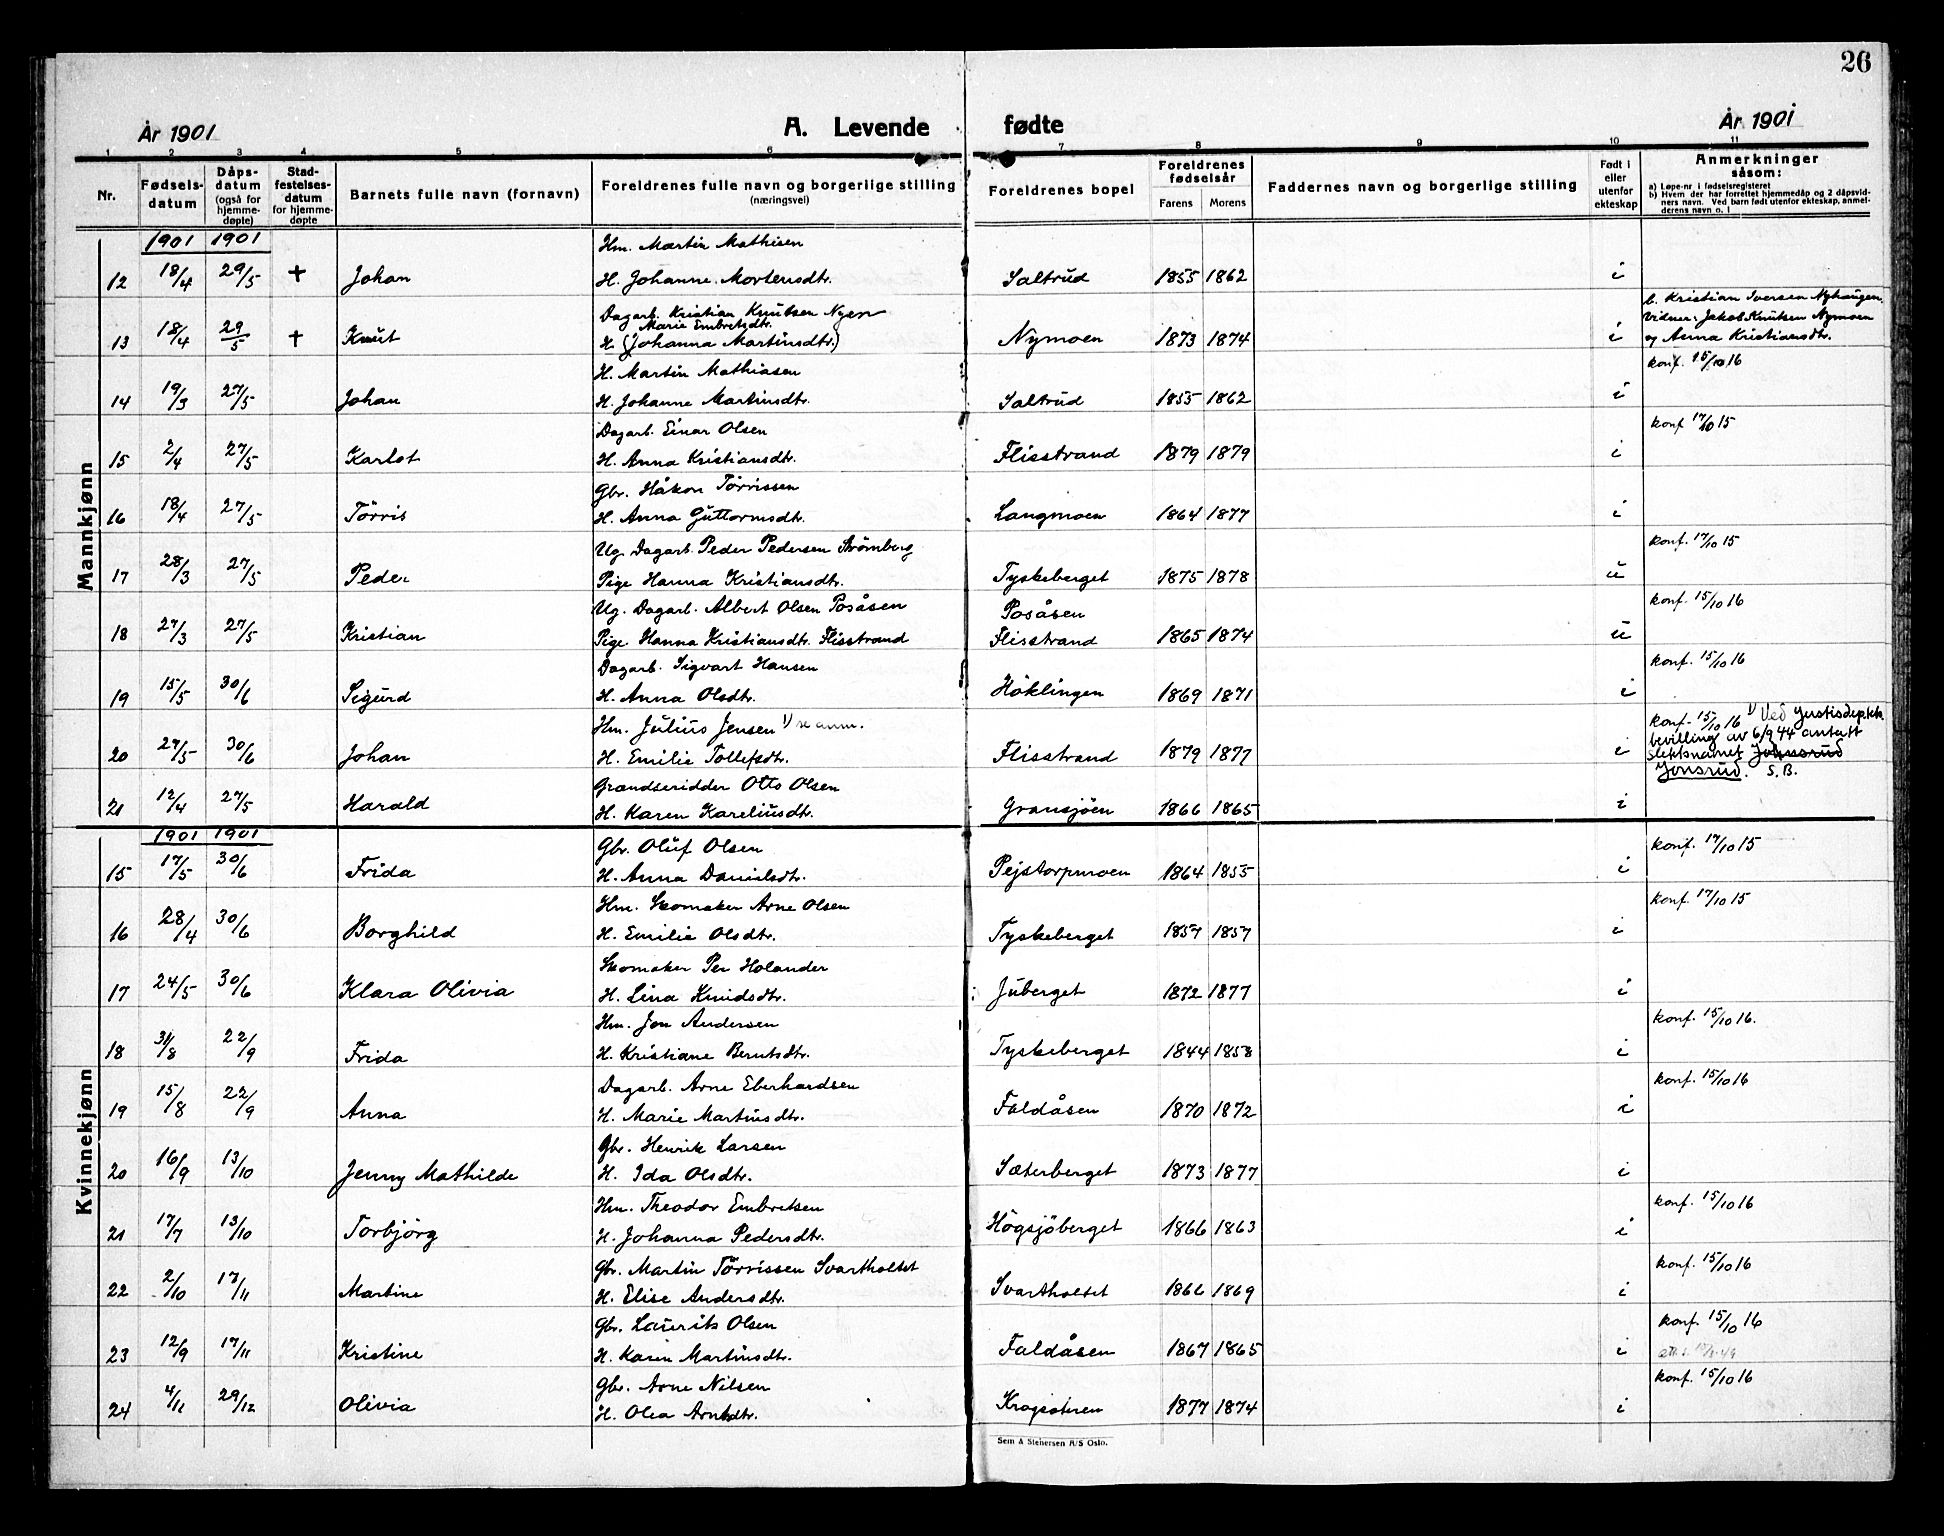 26
År 1901
A. Levende fødte
År 1901
1 2 3 4 5 6 7 8 9 10 11
Nr.
Fødselsdatum
Dåpsdatum (også for hjemmedøpte)
Stadfestelsesdatum for hjemmedøpte
Barnets fulle navn (fornavn)
Foreldrenes fulle navn og borgerlige stilling (næringsvei)
Foreldrenes bopel
Foreldrenes fødselsår
Farens Morens
Faddernes navn og borgerlige stilling
Født i eller utenfor ekteskap
Anmerkninger såsom:
a) Løpe-nr i fødselsregisteret
b) Hvem der har forrettet hjemmedåp og 2 dåpsvidners navn. Ved barn født utenfor ekteskap, anmelderens navn o. l
Mannkjønn
1901 1901
Hm. Martin Mathisen
12 18/4 29/5 + Johan H. Johanne Mortensdtr. Saltrud 1855 1862 i
Dagarb. Kristian Knutsen Nyen b. Kristian Iversen Nyhaugen.
Marie Embretsdtr. Vidner: Jakob Knutsen Nymoen
13 18/4 29/5 + Knut H. (Johanna Martinsdtr.) Nymoen 1873 1874 i og Anna Kristiansdtr.
H. Martin Mathiasen konf. 15/10 16
14 19/3 27/5 Johan H. Johanne Martinsdtr. Saltrud 1855 1862 i
Dagarb. Einar Olsen konf 17/10 15
15 2/4 27/5 Karlot H. Anna Kristiansdtr. Flisstrand 1879 1879 i
Gbr. Håkon Törrissen
16 18/4 27/5 Törris H. Anna Guttormsdtr. Langmoen 1864 1877 i
Ug. Dagarb. Peder Pedersen Strömberg konf. 17/10 15
17 28/3 27/5 Peder Pige Hanna Kristiansdtr. Tyskeberget 1875 1878 u
Ug. Dagarb. Albert Olsen Posåsen Posåsen konf. 15/10 16
18 27/3 27/5 Kristian Pige Hanna Kristiansdtr. Flisstrand Flisstrand 1865 1874 u
Dagarb. Sigvart Hansen konf. 15/10 16
19 15/5 30/6 Sigurd H. Anna Olsdtr. Höklingen 1869 1871 i
Hm. Julius Jensen 1) se anm. konf. 15/10 16 1) Ved Justisdep.tets
bevilling av 6/9 44 antatt
20 27/5 30/6 Johan H. Emilie Tollefsdtr. Flisstrand 1879 1877 i slektsnavnet Johnsrud
Jonsrud. S.B.
Grandseridder Otto Olsen
21 12/4 27/5 Harald H. Karen Kareliusdtr. Gransjöen 1866 1865 i
Kvinnekjønn
1901 1901
Gbr. Oluf Olsen konf. 17/10 15
15 17/5 30/6 Frida H. Anna Danielsdtr. Pejstorpmoen 1864 1855 i
Hm. Skomaker Arne Olsen konf. 17/10 15
16 28/4 30/6 Borghild H. Emilie Olsdtr. Tyskeberget 1857 1857 i
Skomaker Per Holander
17 24/5 30/6 Klara Olivia H. Lina Knudsdtr. Juberget 1872 1877 i
Hm. Jon Andersen konf. 15/10 16.
18 31/8 22/9 Frida H. Kristiane Berntsdtr. Tyskeberget 1844 1858 i
Dagarb. Arne Eberhardsen konf. 15/10 16
19 15/8 22/9 Anna H. Marie Martinsdtr. Faldåsen 1870 1872 i
Gbr. Henrik Larsen
20 16/9 13/10 Jenny Mathilde H. Ida Olsdtr. Sæterberget 1873 1877 i
Hm. Theodor Embretsen konf. 15/10 16
21 17/7 13/10 Torbjörg H. Johanna Pedersdtr. Högsjöberget 1866 1863 i
Gbr. Martin Törrissen Svartholtet konf. 15/10 16
22 2/10 17/11 Martine H. Elise Andersdtr. Svartholtet 1866 1869 i
Gbr. Laurits Olsen konf. 15/10 16
23 12/9 17/11 Kristine H. Karen Martinsdtr. Faldåsen 1867 1865 i
Gbr. Arne Nilsen konf. 15/10 16
24 4/11 29/12 Olivia H. Olea Arntsdtr. Krogsæteren 1877 1874 i
Sem & Stenersen A/S Oslo.